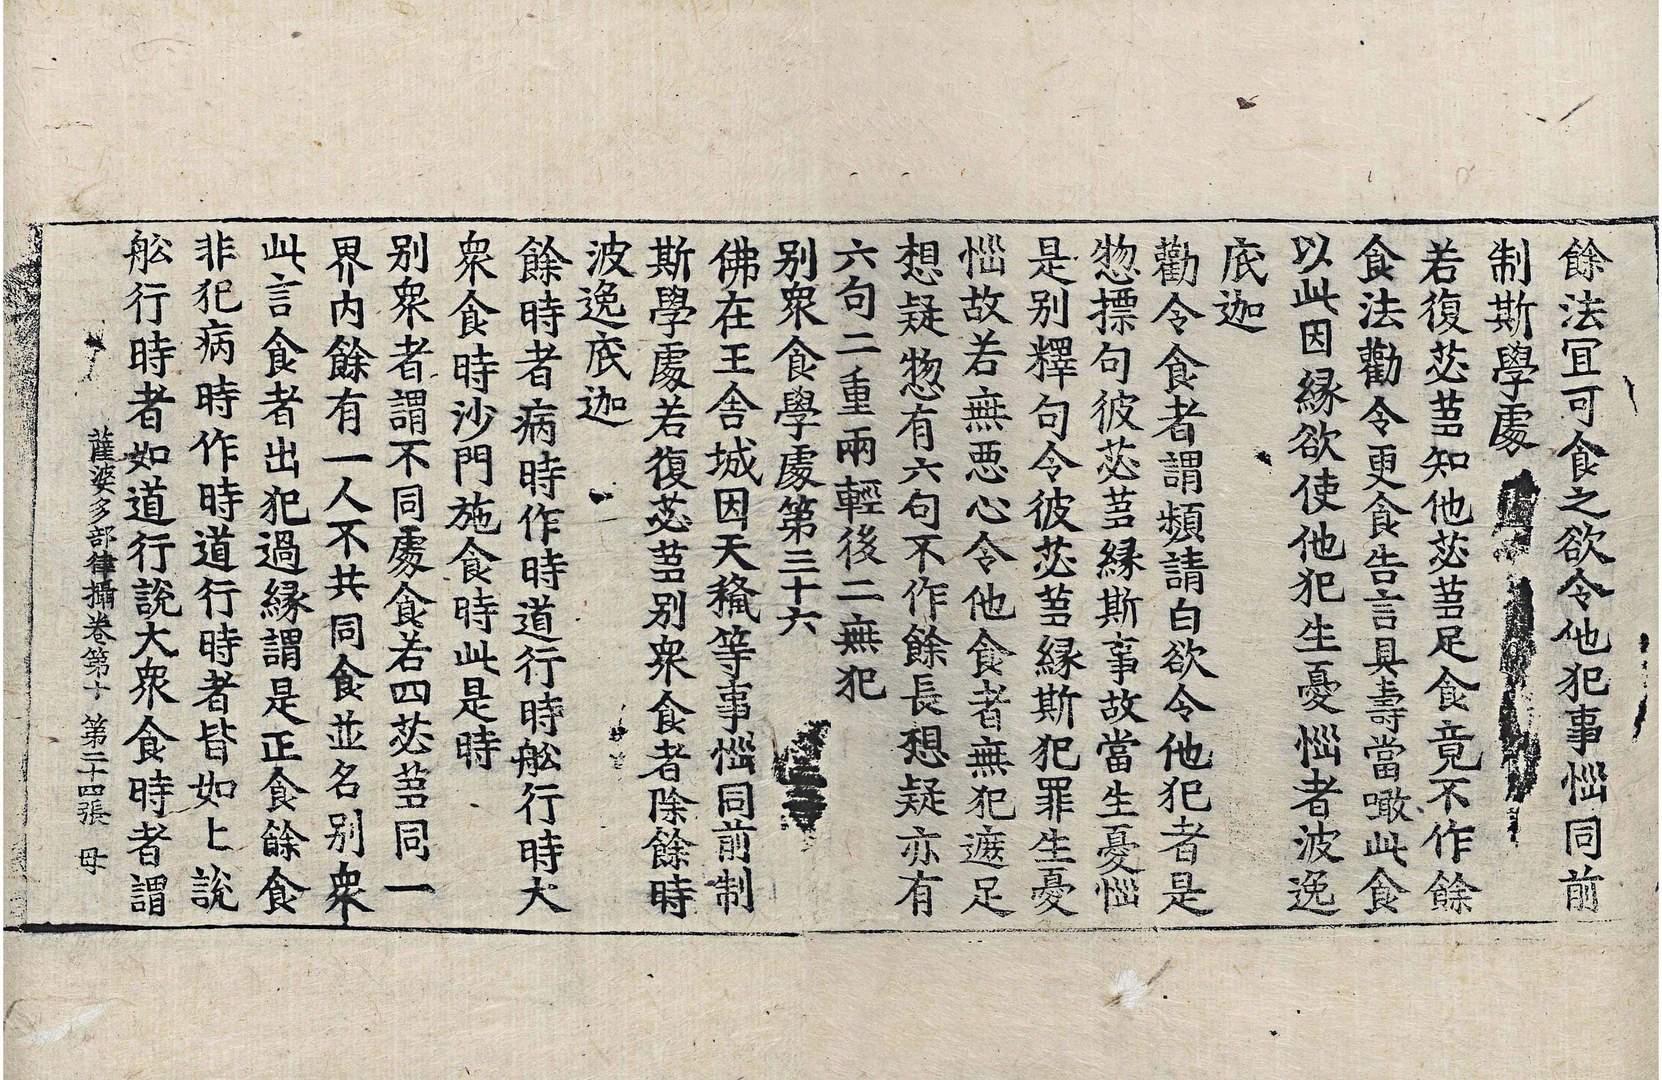 餘法冝可食之欲令他犯事惱同前
制斯學處
若復苾芻知他苾芻足食竟不作餘
食法勸令更食告言具壽當噉此食
以此因緣欲使他犯生憂惱者波逸
底迦
勸令食者謂頻請白欲令他犯者是
惣摽句彼苾芻緣斯事故當生憂惱
是別釋句令彼苾芻緣斯犯罪生憂
惱故若無惡心令他食者無犯遮足
想疑惣有六句不作餘長想疑亦有
六句二重兩輕後二無犯
別衆食學處第三十六
佛在王舍城因天授等事惱同前制
斯學處若復苾芻別衆食者除餘時
波逸底迦
餘時者病時作時道行時舩行時大
衆食時沙門施食時此是時
別衆者謂不同處食若四苾芻同一
界內餘有一人不共同食並名別衆
此言食者出犯過緣謂是正食餘食
非犯病時作時道行時者皆如上說
舩行時者如道行說大衆食時者謂
薩婆多部律攝卷第十 第二十四張 母